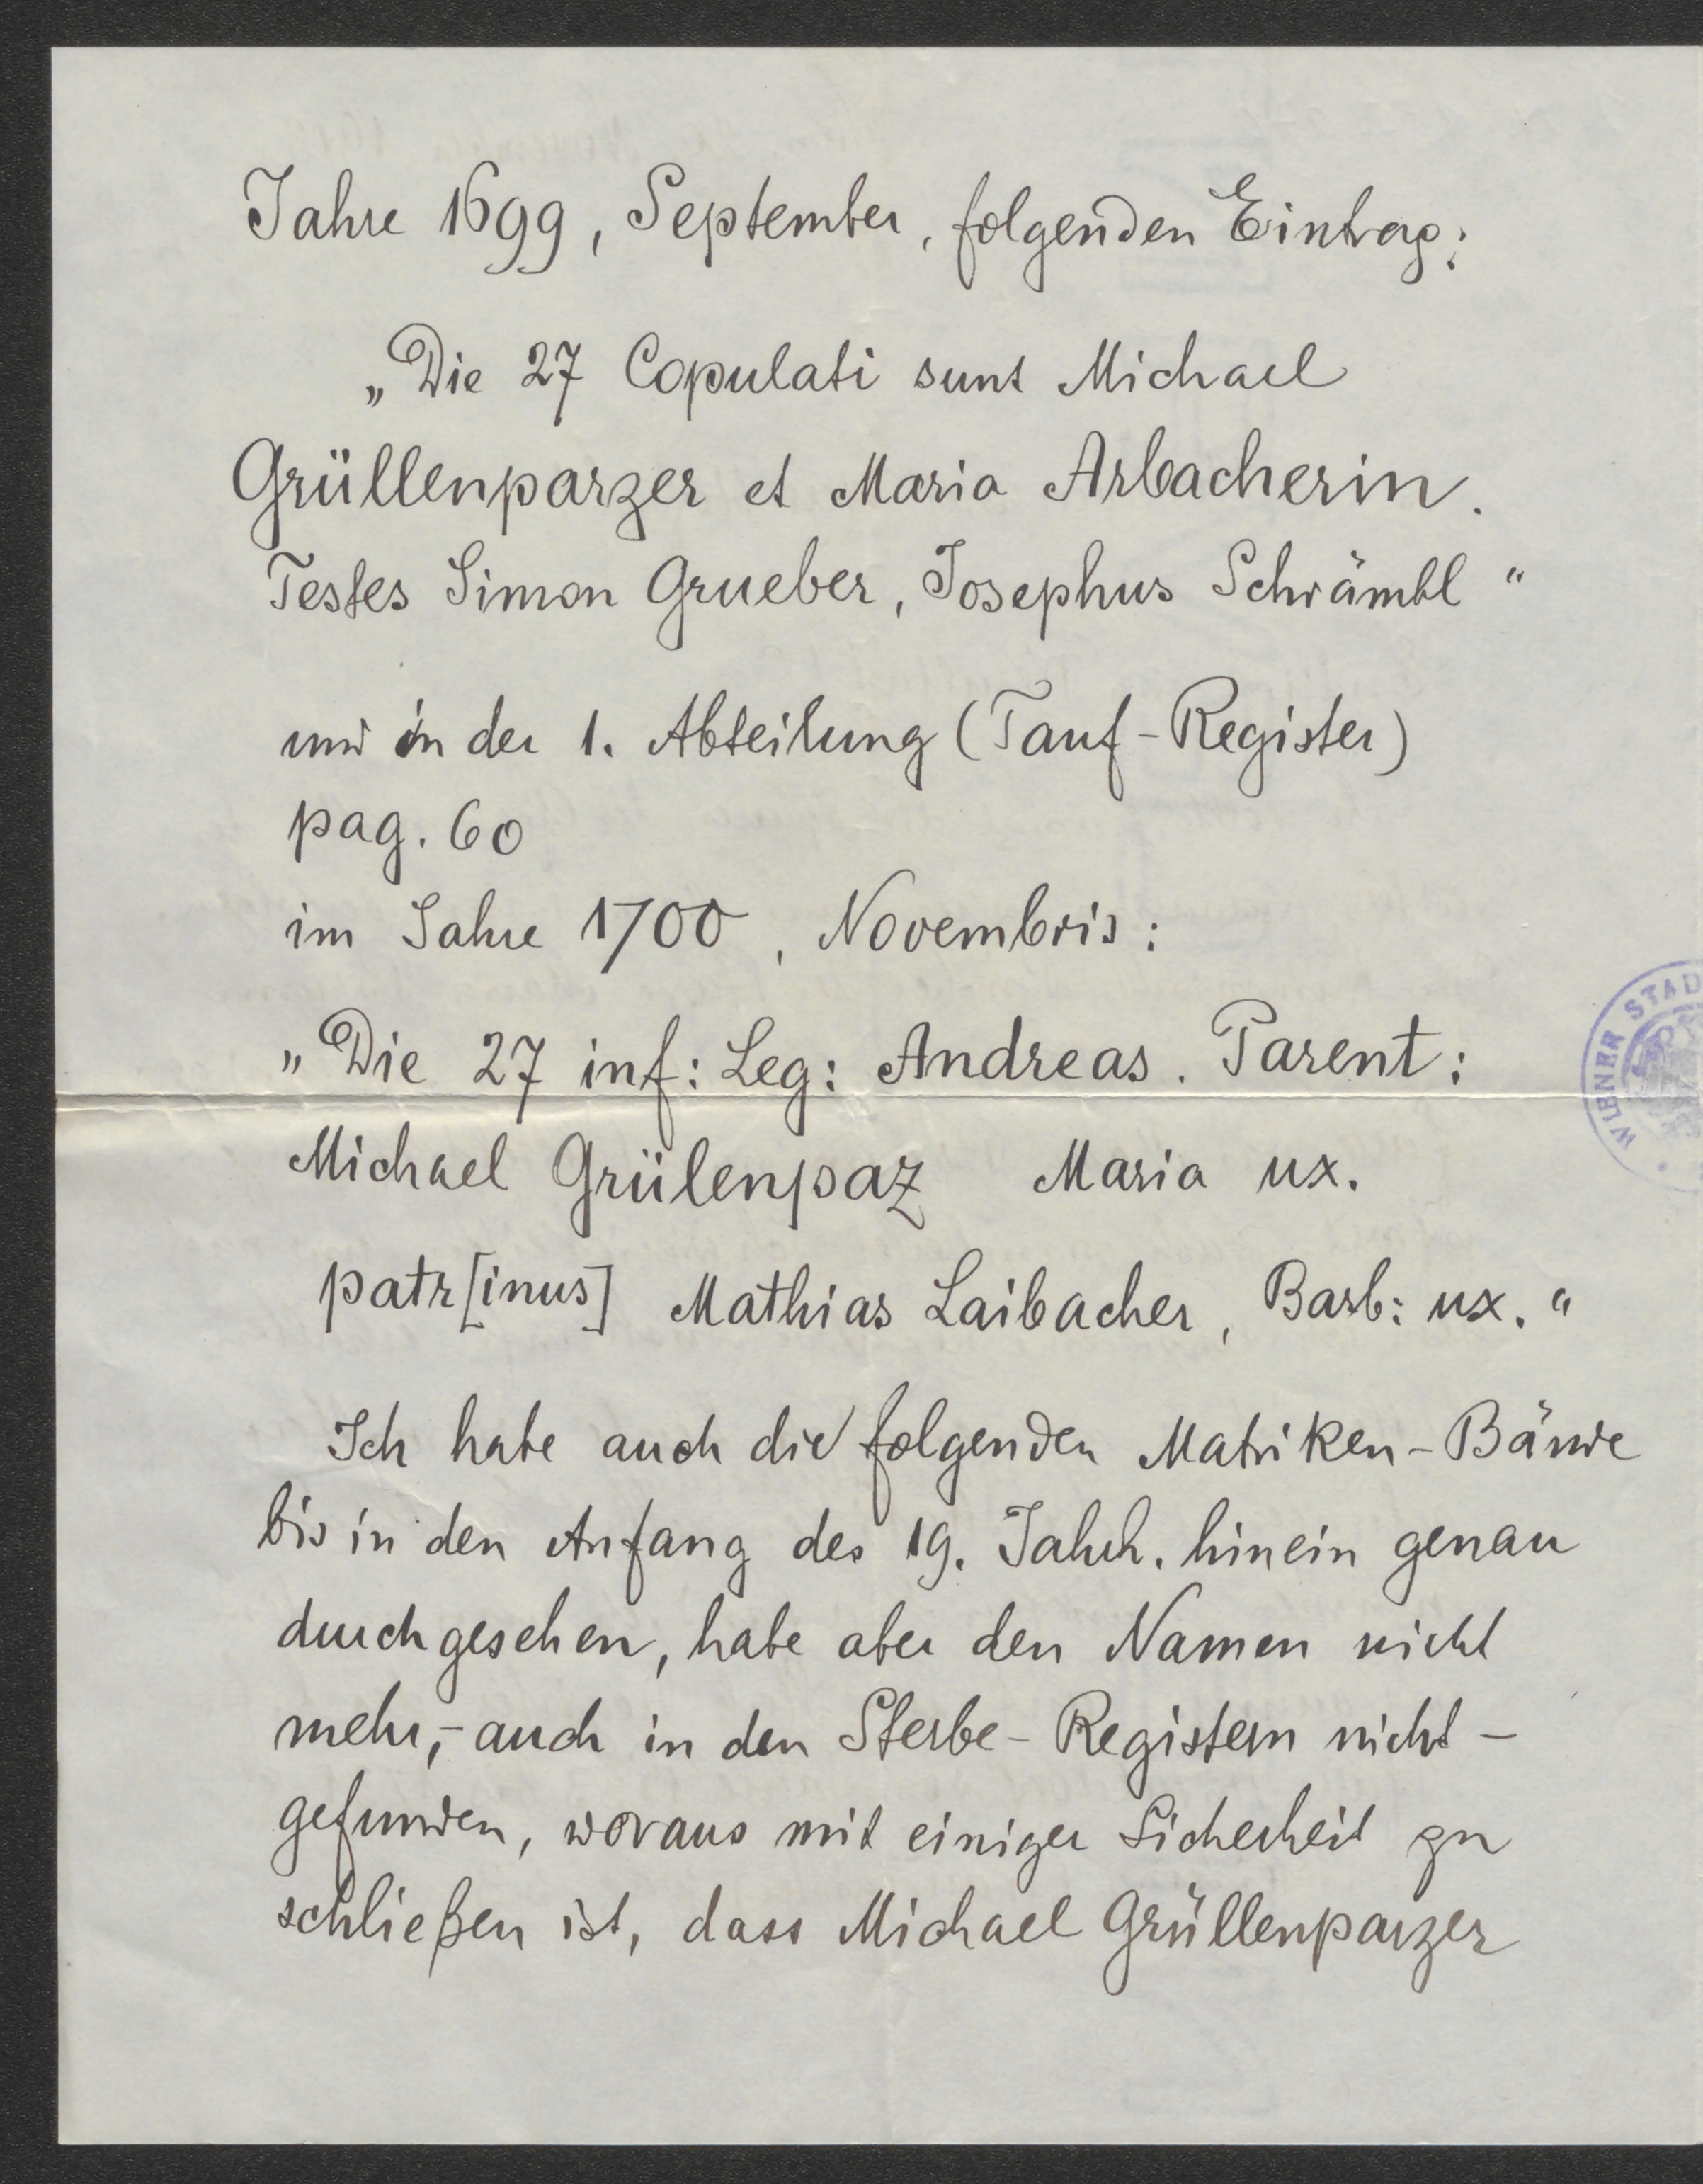 Jahre 1699, September, folgenden Eintrag:
„Die 27 Copulati sunt Michael
Grüllenparzer et Maria Arbacherin.
Testes Simon Grueber, Josephus Schrämbl“
und in der 1. Abteilung (Tauf-Register)
pag. 60
im Jahre 1700, Novembris:
„Die 27 inf: Leg: Andreas. Parent:
Michael Grülenpaz Maria ux.
patr[inus] Mathias Laibacher, Barb: ux.“
Ich habe auch die folgenden Matriken-Bände
bis in den Anfang des 19. Jahrh. hinein genau
durchgesehen, habe aber den Namen nicht
mehr, - auch in den Sterbe-Registern nicht -
gefunden, woraus mit einiger Sicherheit zu
schließen ist, dass Michael Grüllenparzer
WIENER STAD